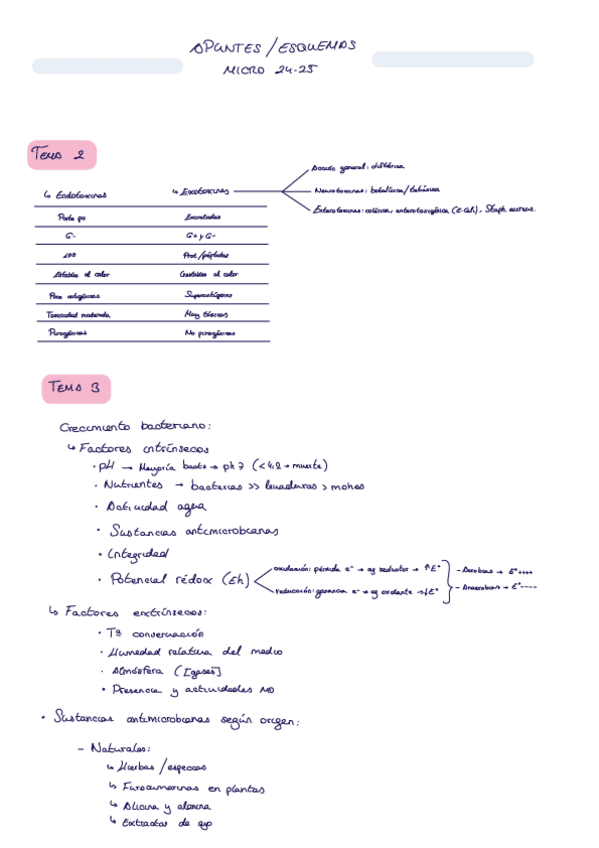 APUNTES / ESQUEMAS
MICRO 24-25
TEMA 2
↳ Endotoxinas ↳ Exotoxinas
Acción general: diftérica
Neurotoxinas: botulínica/tetánica
Enterotoxinas: colérica, enterotoxigénica (E. coli), Staph. aureus.
Parte pc Excretadas
G- G+ y G-
LPS Prot/péptidos
Estables al calor Inestables al calor
Poco antigénicas Superantígenos
Toxicidad moderada Muy tóxicas
Pirogénicas No pirogénicas
TEMA 3
Crecimiento bacteriano:
↳ Factores intrínsecos
· pH → Mayoría bact → ph 7 (<4,2 → muerte)
· Nutrientes → bacterias >> levaduras > mohos
· Actividad agua
· Sustancias antimicrobianas
· Integridad
· Potencial rédox (Eh)
oxidación: pérdida e⁻ → ag reductor → ↑E°
reducción: ganancia e⁻ → ag oxidante → ↓E°
- Aerobias → E°++++
- Anaerobias → E°----
↳ Factores extrínsecos:
· Tª conservación
· Humedad relativa del medio
· Atmósfera ([gases]
· Presencia y actividades MO
· Sustancias antimicrobianas según origen:
- Naturales:
↳ Hierbas / especias
↳ Furocumarinas en plantas
↳ Alicina y aliina
↳ Extractos de